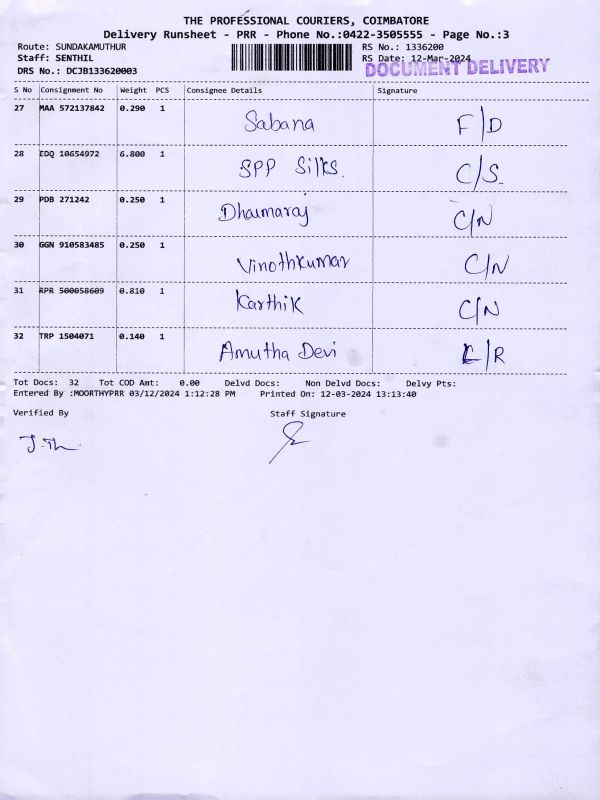 THE PROFESSIONAL COURIERS, COIMBATORE
Delivery Runsheet - PRR - Phone No.:0422-3505555 - Page No.:3
Route: SUNDAKAMUTHUR RS No.: 1336200
Staff: SENTHIL RS Date: 12-Mar-2024
DRS No.: DCJB133620003 DOCUMENT DELIVERY
S No Consignment No Weight PCS Consignee Details Signature
27 MAA 572137842 0.290 1 Sabana F/D
28 EDQ 10654972 6.800 1 SPP Silks. C/S.
29 PDB 271242 0.250 1 Dharmaraj C/N
30 GGN 910583485 0.250 1 Vinothkumar C/N
31 RPR 500058609 0.810 1 Karthik C/N
32 TRP 1504071 0.140 1 Amutha Devi L/R
Tot Docs: 32 Tot COD Amt: 0.00 Delvd Docs: Non Delvd Docs: Delvy Pts:
Entered By :MOORTHYPRR 03/12/2024 1:12:28 PM Printed On: 12-03-2024 13:13:40
Verified By Staff Signature